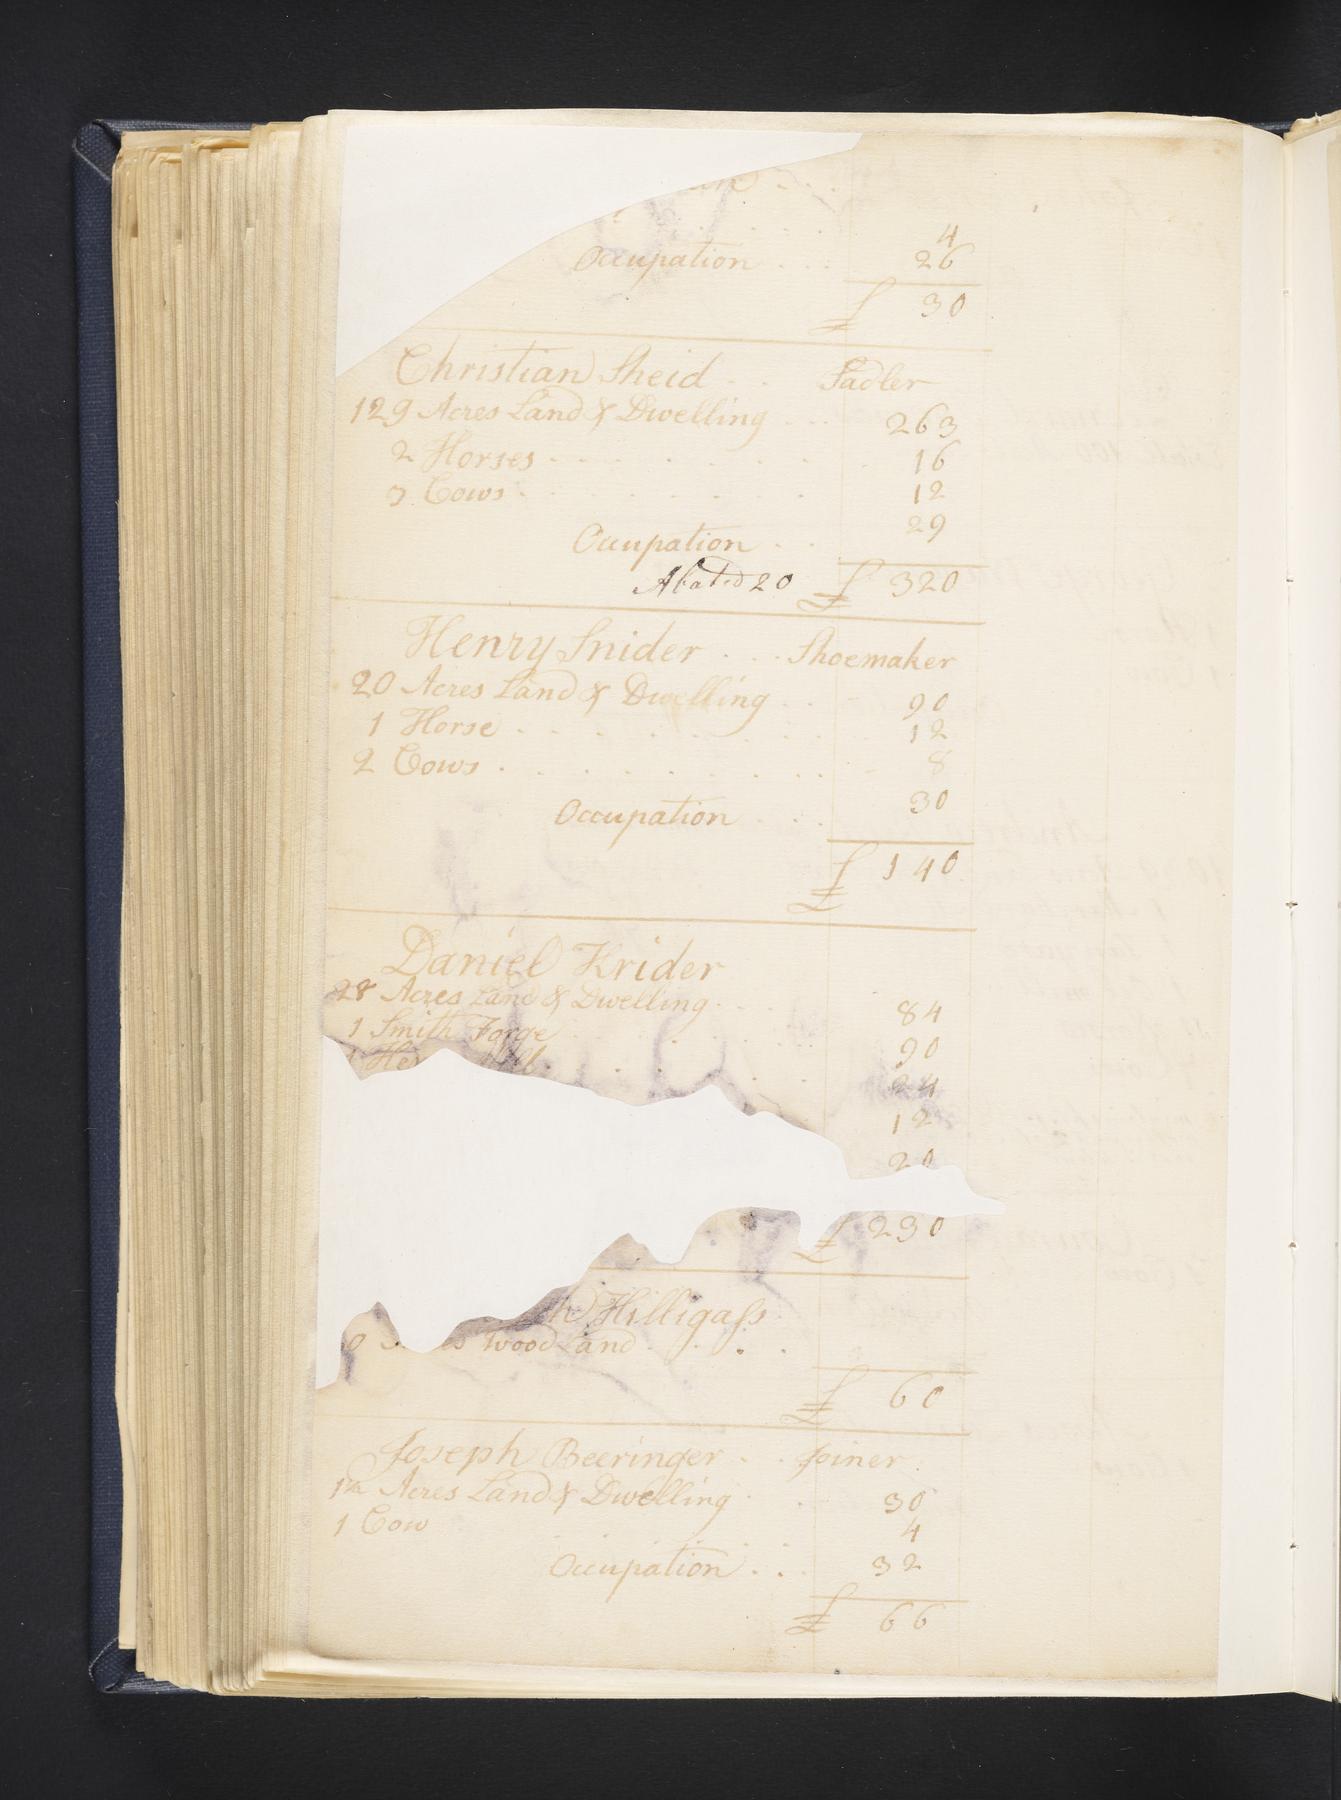 4
Occupation . . . 26
£ 30
Christian Sheid . . Sadler
129 Acres Land & Dwelling . . . 263
2 Horses . . . . . . . . 16
3 Cows . . . . . . . . 12
Occupation . . 29
Abated 20 £ 320
Henry Snider . . . Shoemaker
20 Acres Land & Dwelling . . 90
1 Horse . . . . . . . . 12
2 Cows . . . . . . . . . 8
Occupation . . . 30
£ 140
Daniel Krider
28 Acres Land & Dwelling . . . 84
1 Smith Forge . . . . 90
1 . . . . 24
12
20
£ 230
Hilligass
Wood Land . . . .
£ 60
Joseph Beeringer . . Joiner
Acres Land & Dwelling . . 30
1 Cow . . . 4
Occupation . . . 32
£ 66